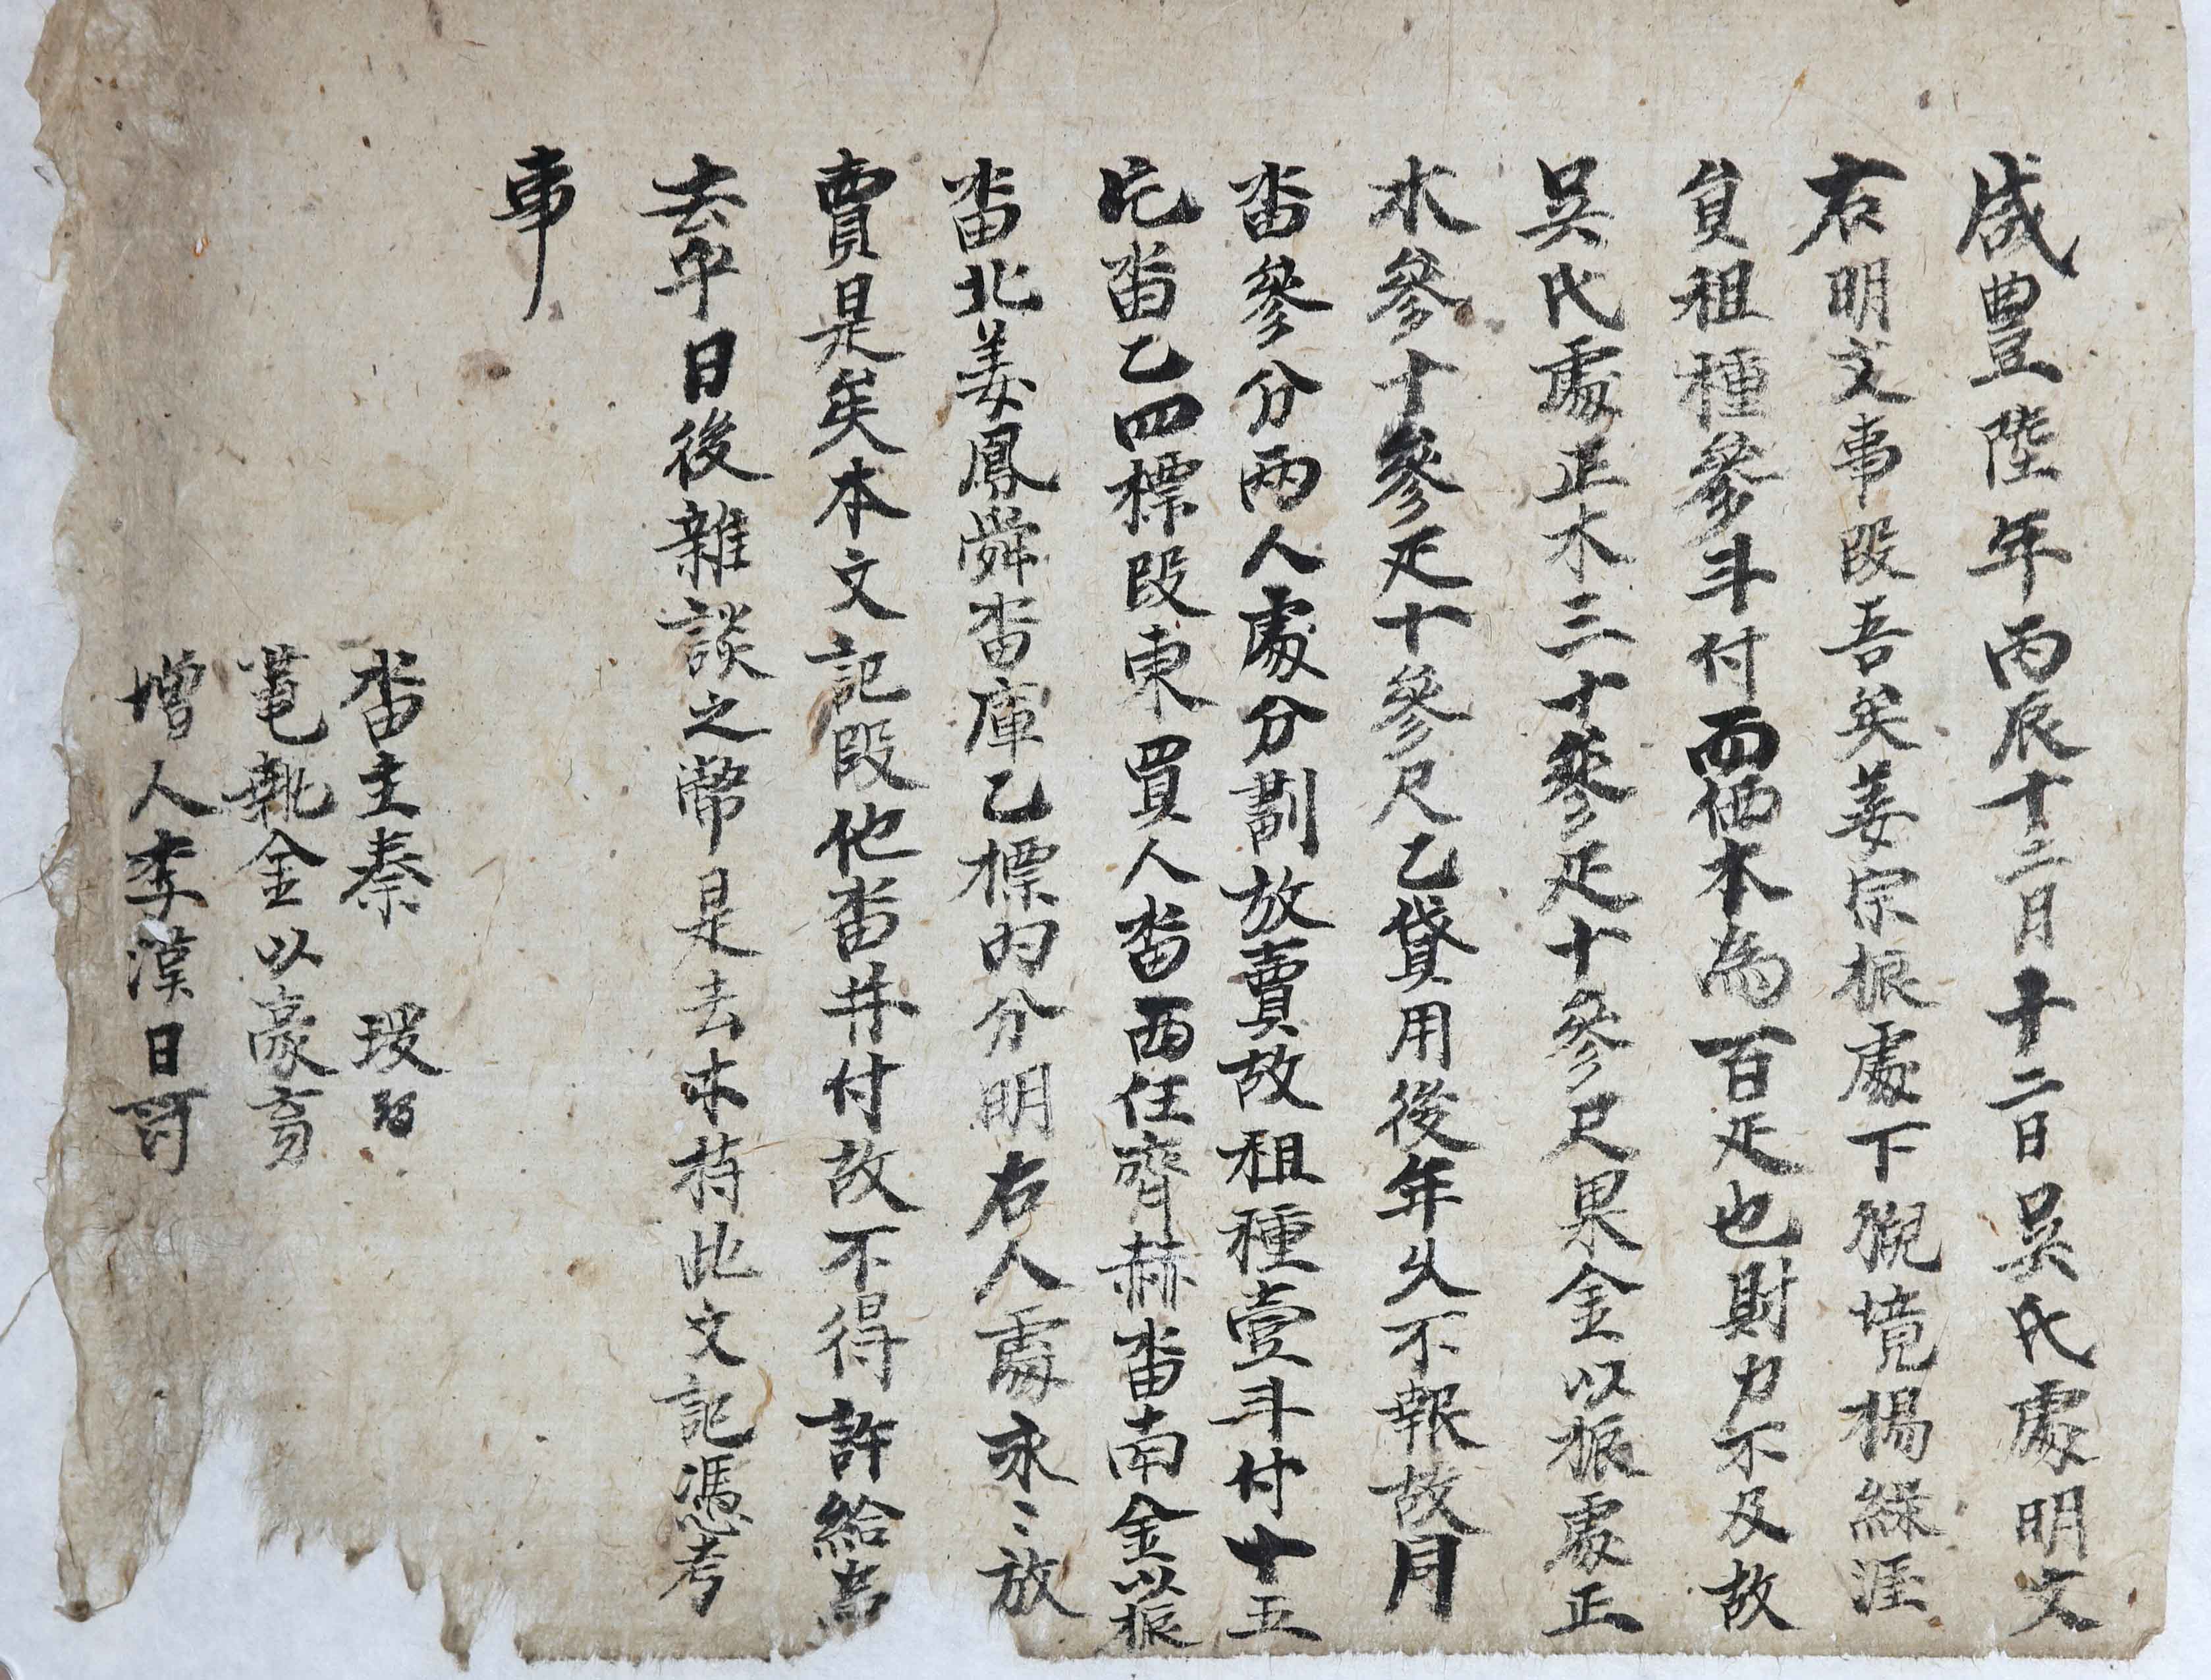 咸豊陸年丙辰十二月十二日吳氏處明文
右明文事段吾矣姜宗振處下猊境楊綠涯
負租種參斗付面価本為百疋也財力不及故
吳氏處正木三十參疋十參尺果金以振處正
木參十參疋十參尺乙貸用後年久不報故同
畓參分兩人處分劃放賣故租種壹斗付十五
卜畓乙四標段東買人畓西任齊赫畓南金以振
畓北姜鳳舜畓庫乙標的分明右人處永〻放
賣是矣本文記段他畓幷付故不得許給為
去乎日後雜談之幣是去木持此文記憑考
事
畓主秦 㻐
筆執金以豪
增人李漢日